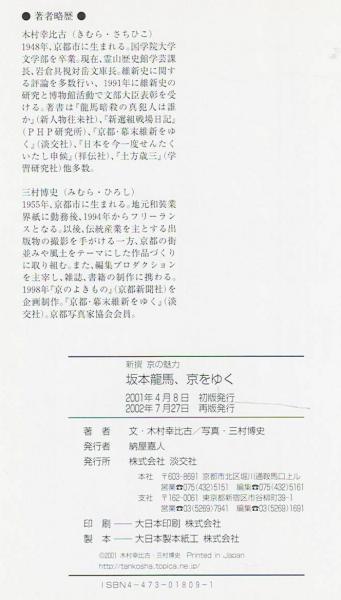 ● 著者略歴 ●
木村幸比古（きむら・さちひこ）
1948年、京都市に生まれる。国学院大学
文学部を卒業。現在、霊山歴史館学芸課
長、岩倉具視対岳文庫長。維新史に関す
る評論を多数行い、1991年に維新史の
研究と博物館活動で文部大臣表彰を受
ける。著書は『龍馬暗殺の真犯人は誰
か』(新人物往来社)、『新選組戦場日記』
(PHP研究所)、『京都・幕末維新をゆ
く』(淡交社)、『日本を今一度せんたく
いたし申候』(祥伝社)、『土方歳三』(学
習研究社)他多数。
三村博史（みむら・ひろし）
1955年、京都市に生まれる。地元和装業
界紙に勤務後、1994年からフリーラン
スとなる。以後、伝統産業を主とする出
版物の撮影を手がける一方、京都の街
並みや風土をテーマにした作品づくり
に取り組む。また、編集プロダクション
を主宰し、雑誌、書籍の制作に携わる。
1998年『京のよきもの』(京都新聞社)を
企画制作。『京都・幕末維新をゆく』(淡
交社)。京都写真家協会会員。
新撰 京の魅力
坂本龍馬、京をゆく
2001年4月8日 初版発行
2002年7月27日 再版発行
著者 文・木村幸比古／写真・三村博史
発行者 納屋嘉人
発行所 株式会社 淡交社
本社 〒603-8691 京都市北区堀川通鞍馬口上ル
営業☎075(432)5151 編集☎075(432)5161
支社 〒162-0061 東京都新宿区市谷柳町39-1
営業☎03(5269)7941 編集☎03(5269)1691
印刷 ── 大日本印刷 株式会社
製本 ── 大日本製本紙工 株式会社
©2001 木村幸比古 三村博史 Printed in Japan
http://tankosha.topica.ne.jp/
ISBN4-473-01809-1